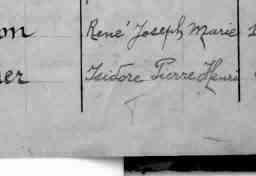 on René Joseph Marie
er Isidore Pierre Henri